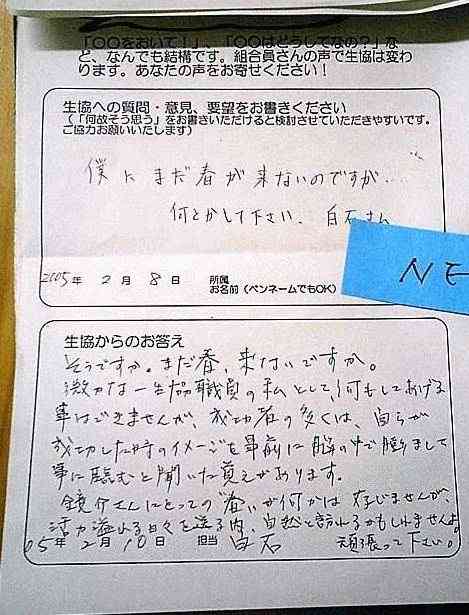 「〇〇をおいて！」、「〇〇はどうしてなの？」な
ど、なんでも結構です。組合員さんの声で生協は変わ
ります。あなたの声をお寄せください！
生協への質問・意見、要望をお書きください
（「何故そう思う」をお書きいただけると検討させていただきやすいです。
ご協力お願いいたします）
僕にまだ春が来ないのですが…
何とかして下さい、白石さん
2005年 2月 8日 所属
お名前（ペンネームでもOK）
NE
生協からのお答え
そうですか。まだ春、来ないですか。
微力な一生協職員の私として、何もしてあげる
事はできませんが、成功者の多くは、自らが
成功した時のイメージを事前に脳の中で創りまして
事に臨むと聞いた覚えがあります。
鏡介さんにとっての"春"が何かは存じませんが、
活力溢れる日々を送る内、自然と訪れるかもしれませんよ。
05年 2月 10日 担当 白石 頑張って下さい。